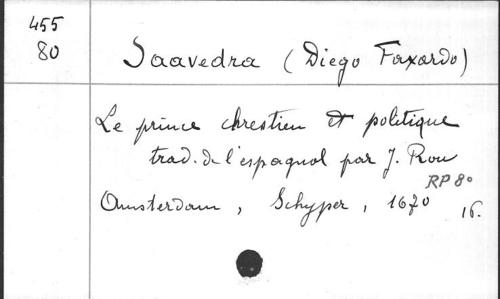 455
80
Saavedra (Diego Faxardo)
Le prince chrestien et politique
trad. de l'espagnol par J. Rou
RP 80
Amsterdam, Schyper, 1670 16.